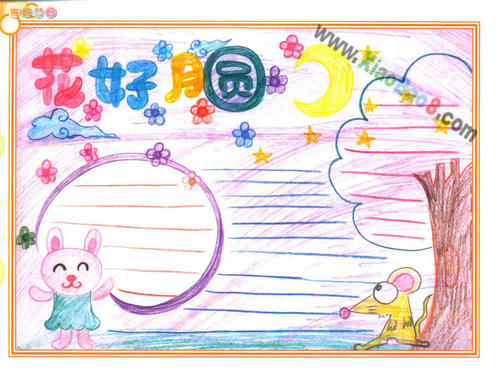 花好月圆
www.XiaoBao8.com